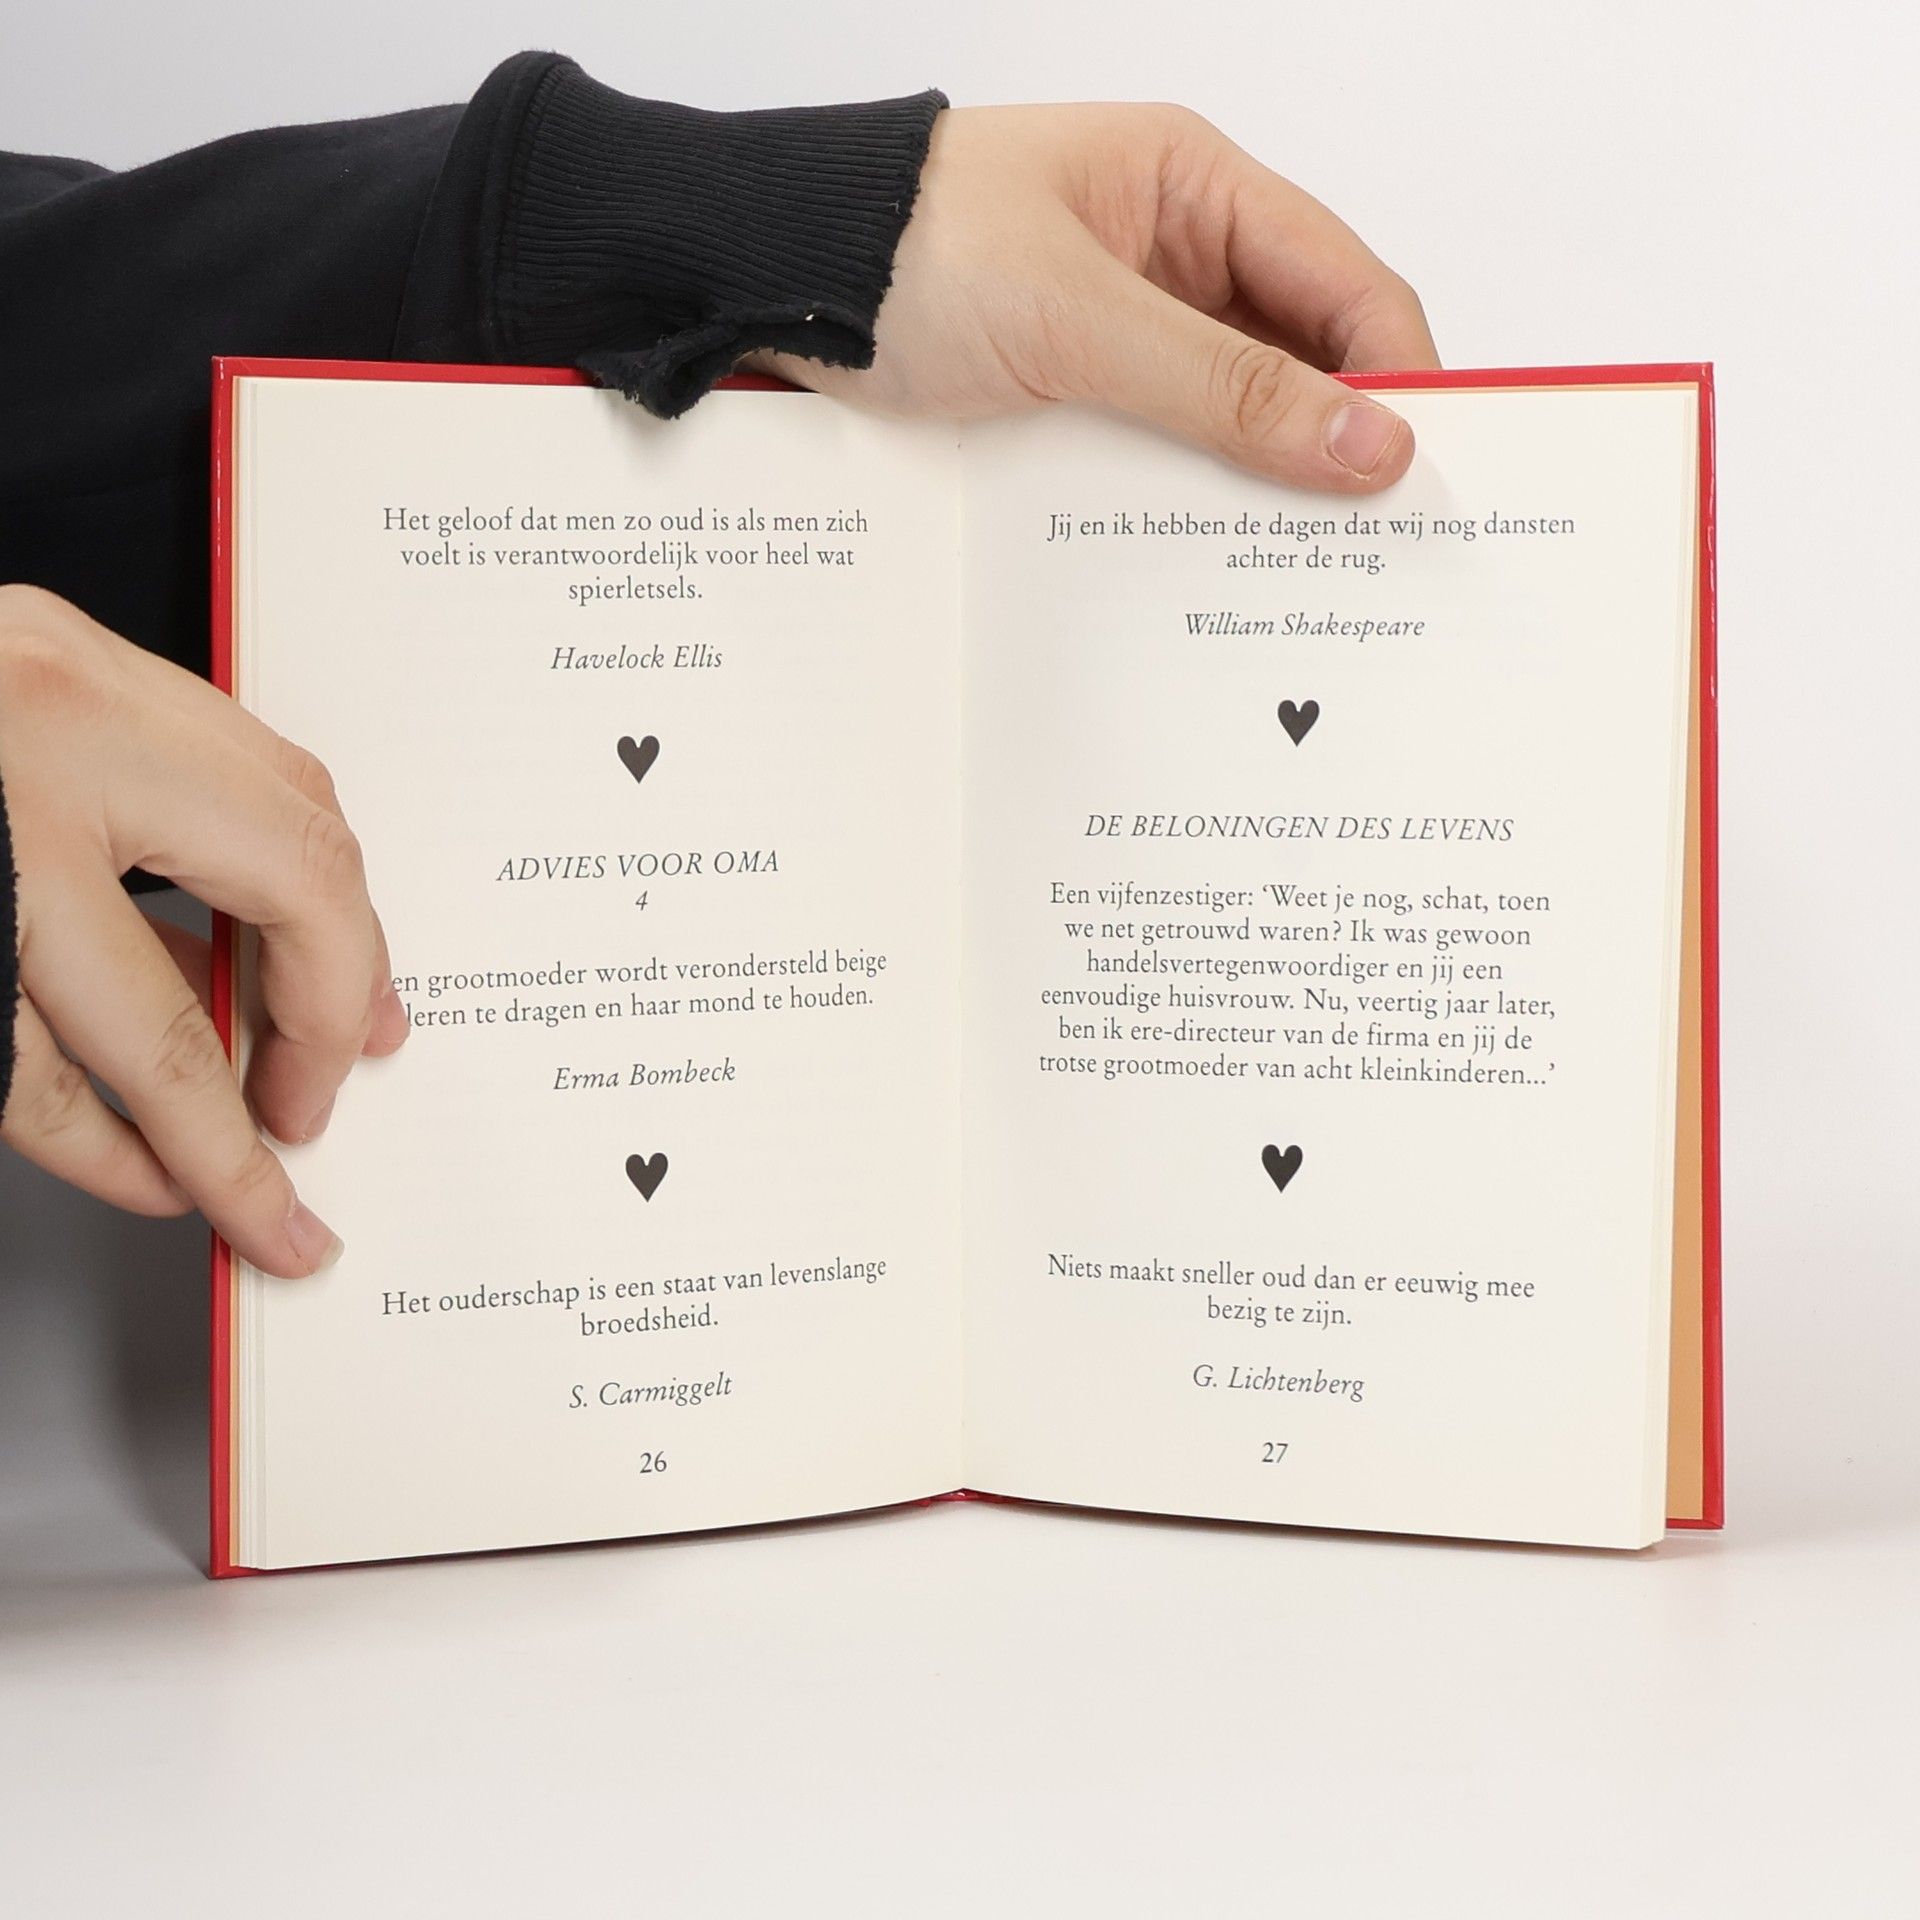 Het geloof dat men zo oud is als men zich
voelt is verantwoordelijk voor heel wat
spierletsels.
Havelock Ellis
ADVIES VOOR OMA
4
en grootmoeder wordt verondersteld beige
leren te dragen en haar mond te houden.
Erma Bombeck
Het ouderschap is een staat van levenslange
broedsheid.
S. Carmiggelt
26
Jij en ik hebben de dagen dat wij nog dansten
achter de rug.
William Shakespeare
DE BELONINGEN DES LEVENS
Een vijfenzestiger: ‘Weet je nog, schat, toen
we net getrouwd waren? Ik was gewoon
handelsvertegenwoordiger en jij een
eenvoudige huisvrouw. Nu, veertig jaar later,
ben ik ere-directeur van de firma en jij de
trotse grootmoeder van acht kleinkinderen...’
Niets maakt sneller oud dan er eeuwig mee
bezig te zijn.
G. Lichtenberg
27